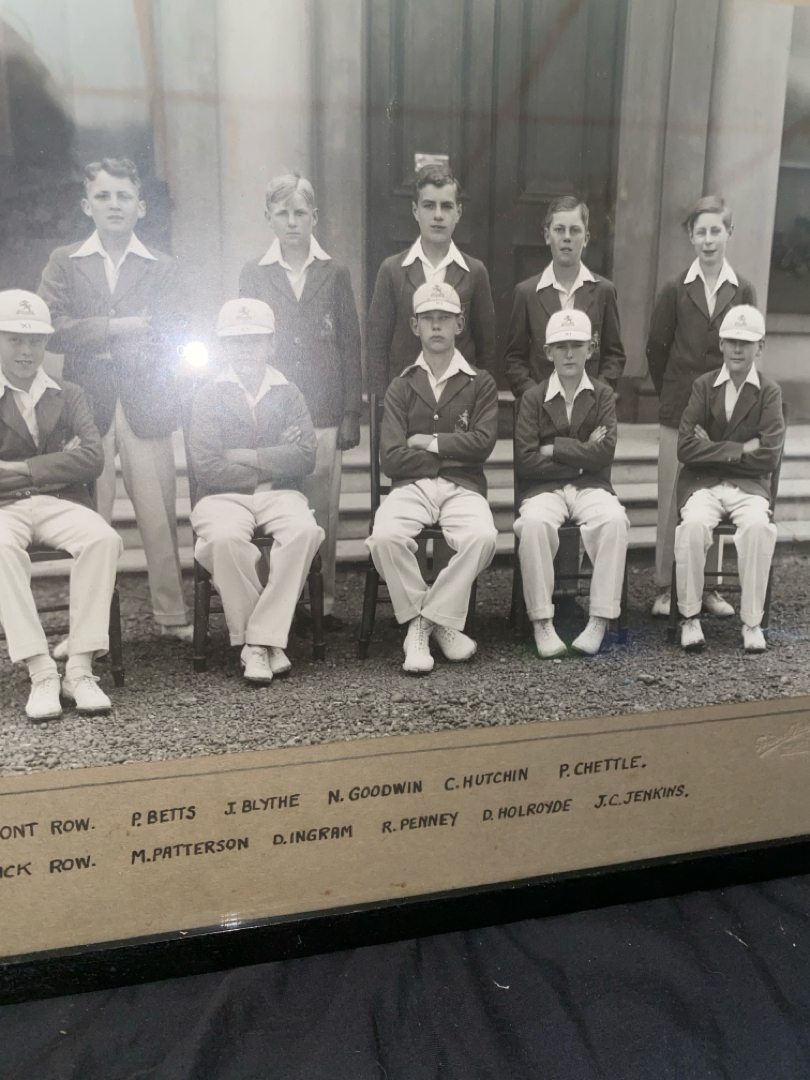 ONT ROW. P. BETTS J. BLYTHE N. GOODWIN C. HUTCHIN P. CHETTLE.
CK ROW. M. PATTERSON D. INGRAM R. PENNEY D. HOLROYDE J.C. JENKINS.